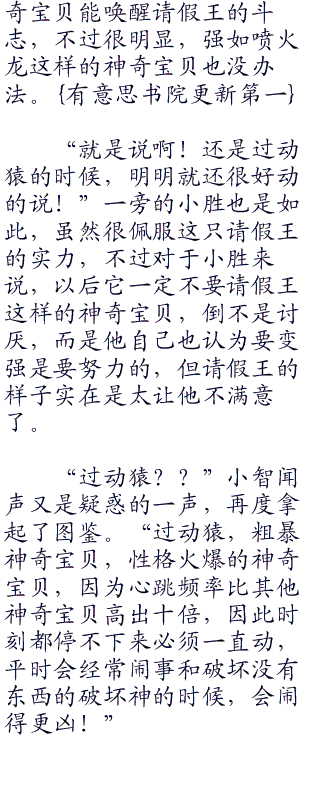 奇宝贝能唤醒请假王的斗
志，不过很明显，强如喷火
龙这样的神奇宝贝也没办
法。{有意思书院更新第一}
“就是说啊！还是过动
猿的时候，明明就还很好动
的说！”一旁的小胜也是如
此，虽然很佩服这只请假王
的实力，不过对于小胜来
说，以后它一定不要请假王
这样的神奇宝贝，倒不是讨
厌，而是他自己也认为要变
强是要努力的，但请假王的
样子实在是太让他不满意
了。
“过动猿？？”小智闻
声又是疑惑的一声，再度拿
起了图鉴。“过动猿，粗暴
神奇宝贝，性格火爆的神奇
宝贝，因为心跳频率比其他
神奇宝贝高出十倍，因此时
刻都停不下来必须一直动，
平时会经常闹事和破坏没有
东西的破坏神的时候，会闹
得更凶！”